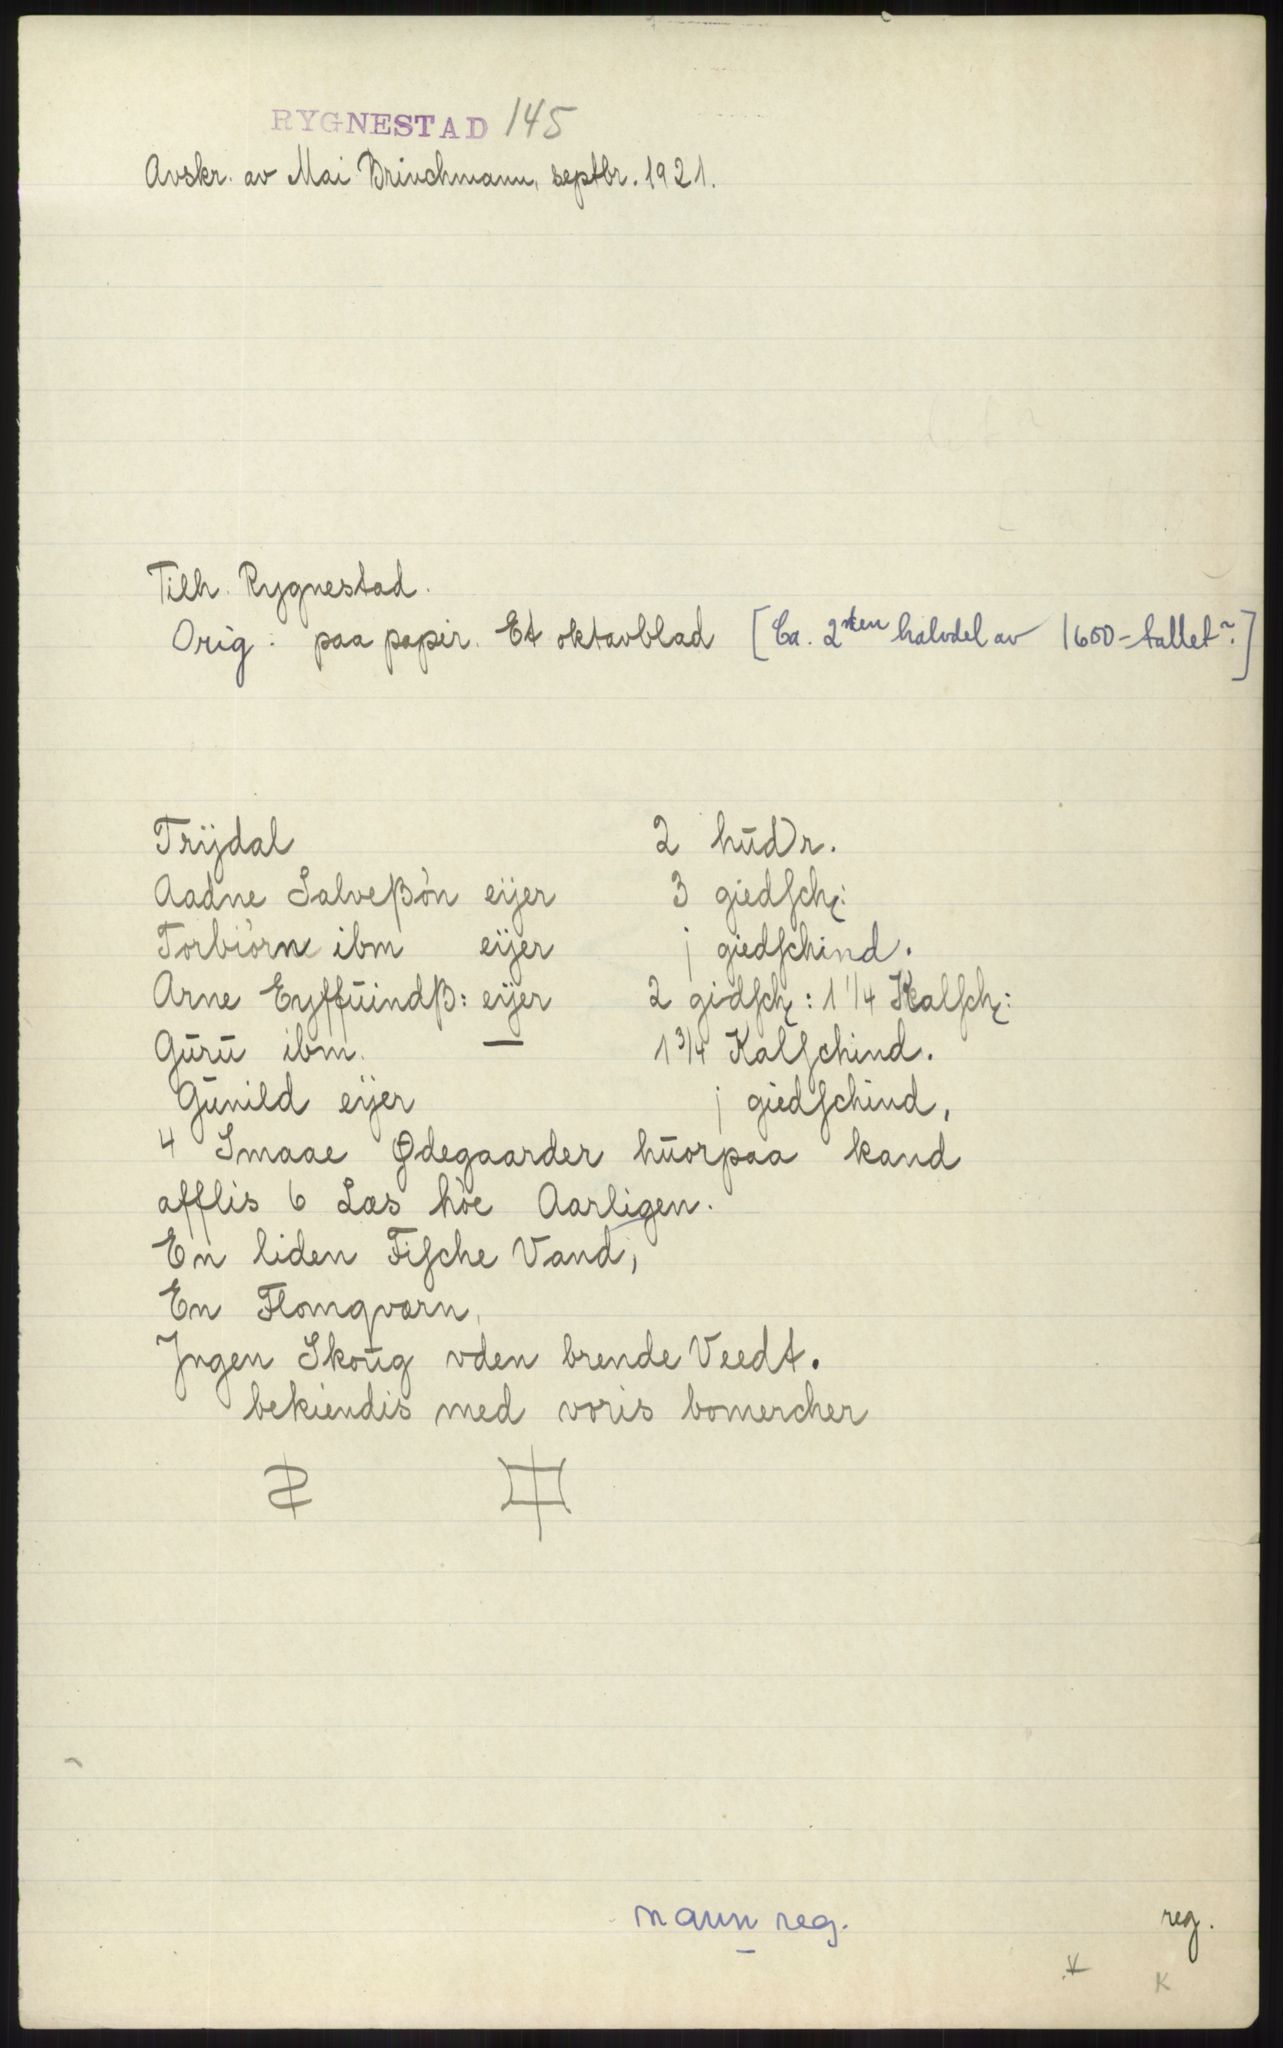 RYGNESTAD 145
Avskr. av Mai Brinchmann, septbr. 1921.
Tilh. Rygnestad.
Orig: paa papir. Et oktavblad [Ca. 2den halvdel av 1600-tallet?]
Trÿdal 2 hūdr.
Aadne Salveßòn eÿer 3 giedſch:
Torbiòrn ibm eÿer j giedſchind.
Arne Eyffūindß: eÿer 2 gidſch: 1 1/4 Kalſch:
Gūrū ibm. — 1 3/4 Kalſchind.
Gūnild eÿer j giedſchind,
4 Smaae Ødegaarder hūorpaa kand
afflis 6 Læs hòe Aarligen.
En liden Fiſche Vand,
En Flomqværn,
Jngen Skoūg vden brende Veedt.
bekiendis med voris bomercher
navn reg.
reg.
K